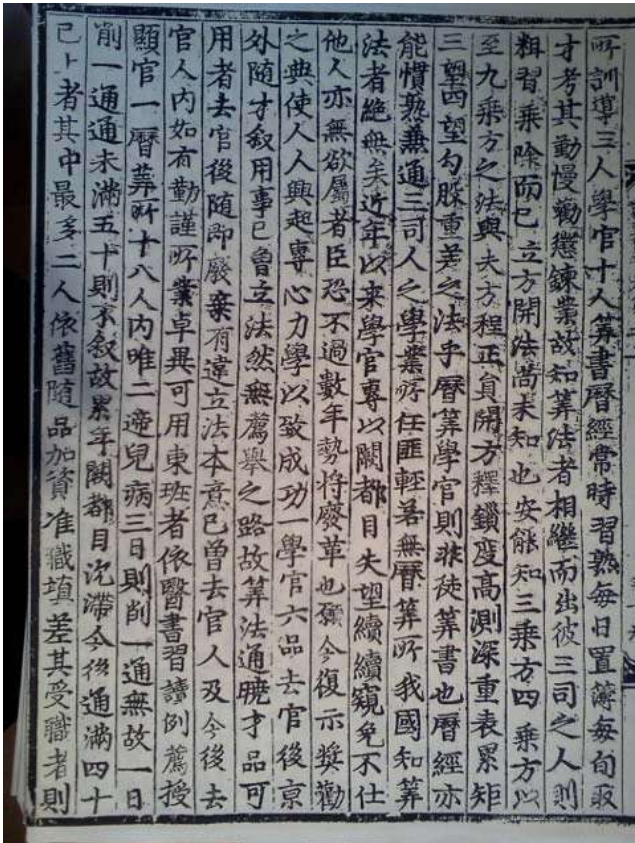 所訓導三人學官十人筭書曆經常時習熟每日置簿每旬取
才考其勤慢勸懲鍊業故知筭法者相繼而出彼三司之人則
粗習乗除而已立方開法尚未知也安能知三乗方四乗方以
至九乗方之法與夫方程正負開方釋鎖度高測深重表累矩
三望四望勾股重差之法乎曆筭學官則非徒筭書也曆經亦
能慣熟兼通三司人之學業所任匪輕若無曆筭所我國知筭
法者絶無矣近年以来學官專以闕都目失望續續窺免不仕
他人亦無欲屬者臣恐不過數年勢將廢革也願今復示奬勸
之典使人人興起專心力學以致成功一學官六品去官後京
外隨才叙用事已曽立法然無薦舉之路故筭法通曉才品可
用者去官後随即廢棄有違立法本意已曽去官人及今後去
官人内如有勤謹所業卓異可用東班者依醫書習讀例薦授
顯官一曆筭所十八人内唯二遞兒病三日則削一通無故一日
削一通通未滿五十則不叙故累年闕都目沈滯今後通滿四十
已上者其中最多二人依舊随品加資准職填差其受職者則